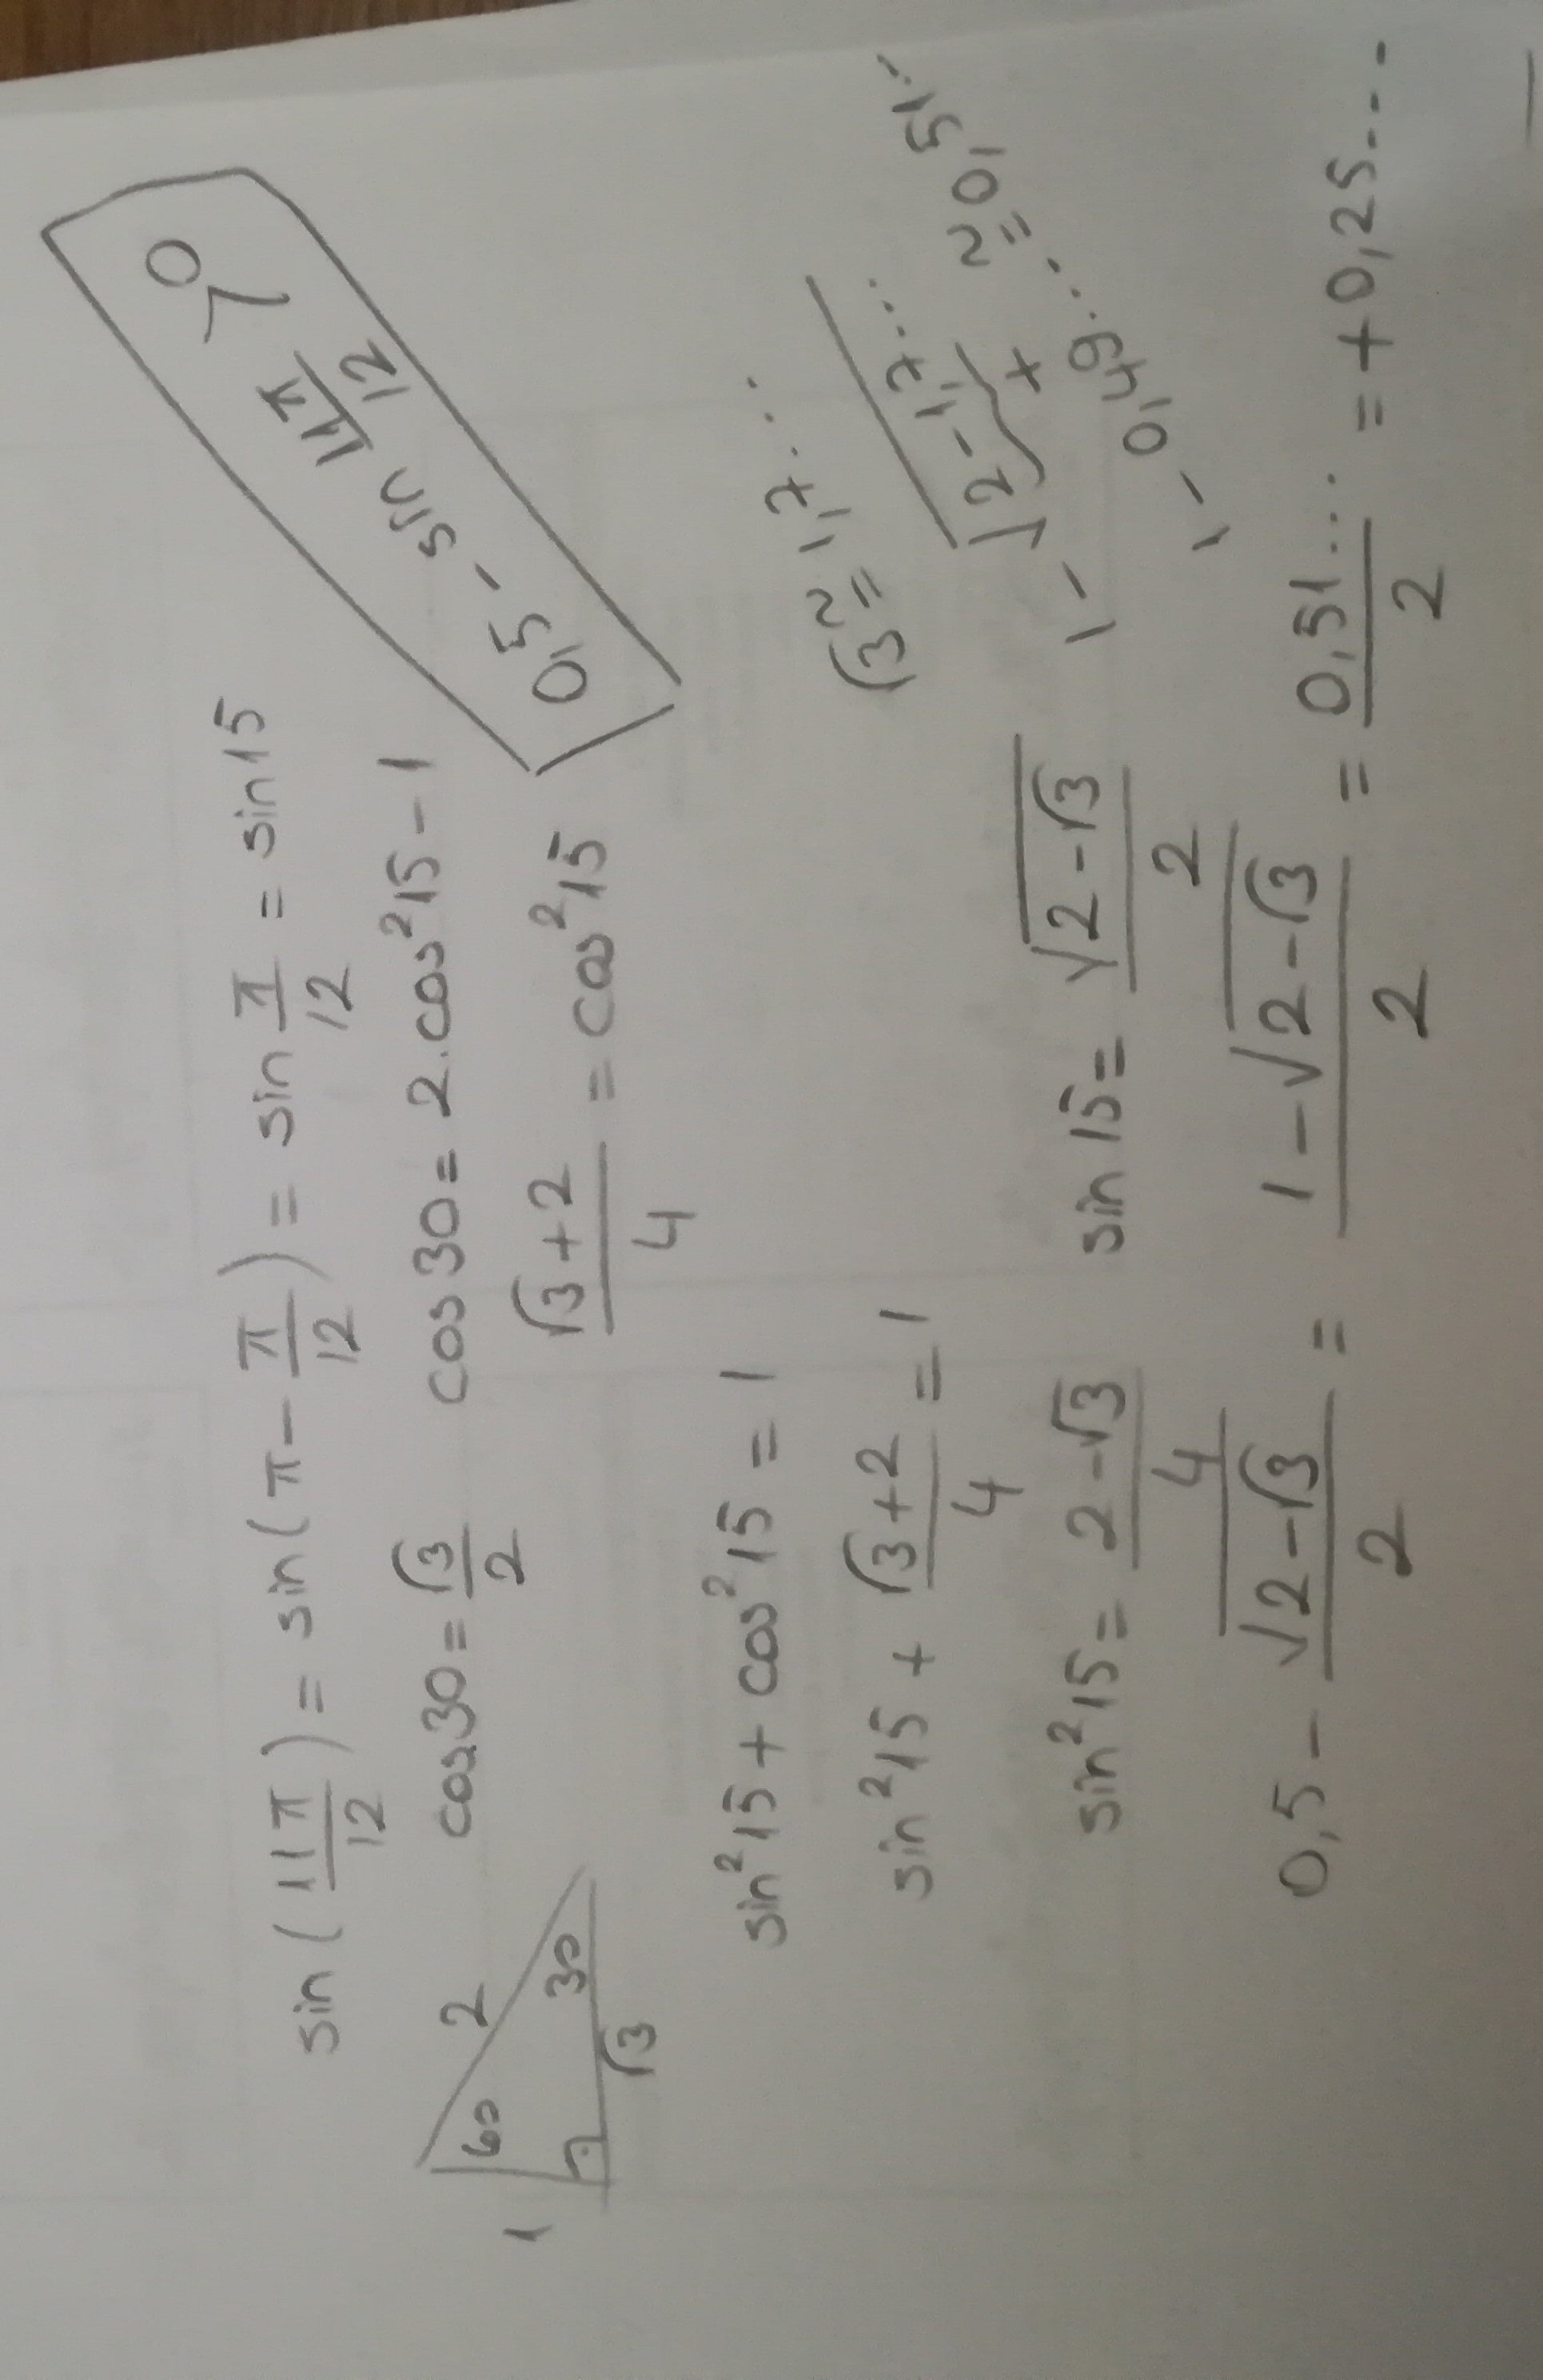 sin(11π/12) = sin(π - π/12) = sin π/12 = sin15
0,5 - sin 11π/12 > 0
1 2 60 30 √3
cos30 = √3/2 cos30 = 2.cos²15 - 1
(√3+2)/4 = cos²15
sin²15 + cos²15 = 1
√3 ≅ 1,7....
sin²15 + (√3+2)/4 = 1
1 - √(2-1,7...) ≅ 0,51..
sin²15 = (2-√3)/4 sin15 = √(2-√3)/2
1 - 0,49...
0,5 - √(2-√3)/2 = (1-√(2-√3))/2 = 0,51.../2 = +0,25....